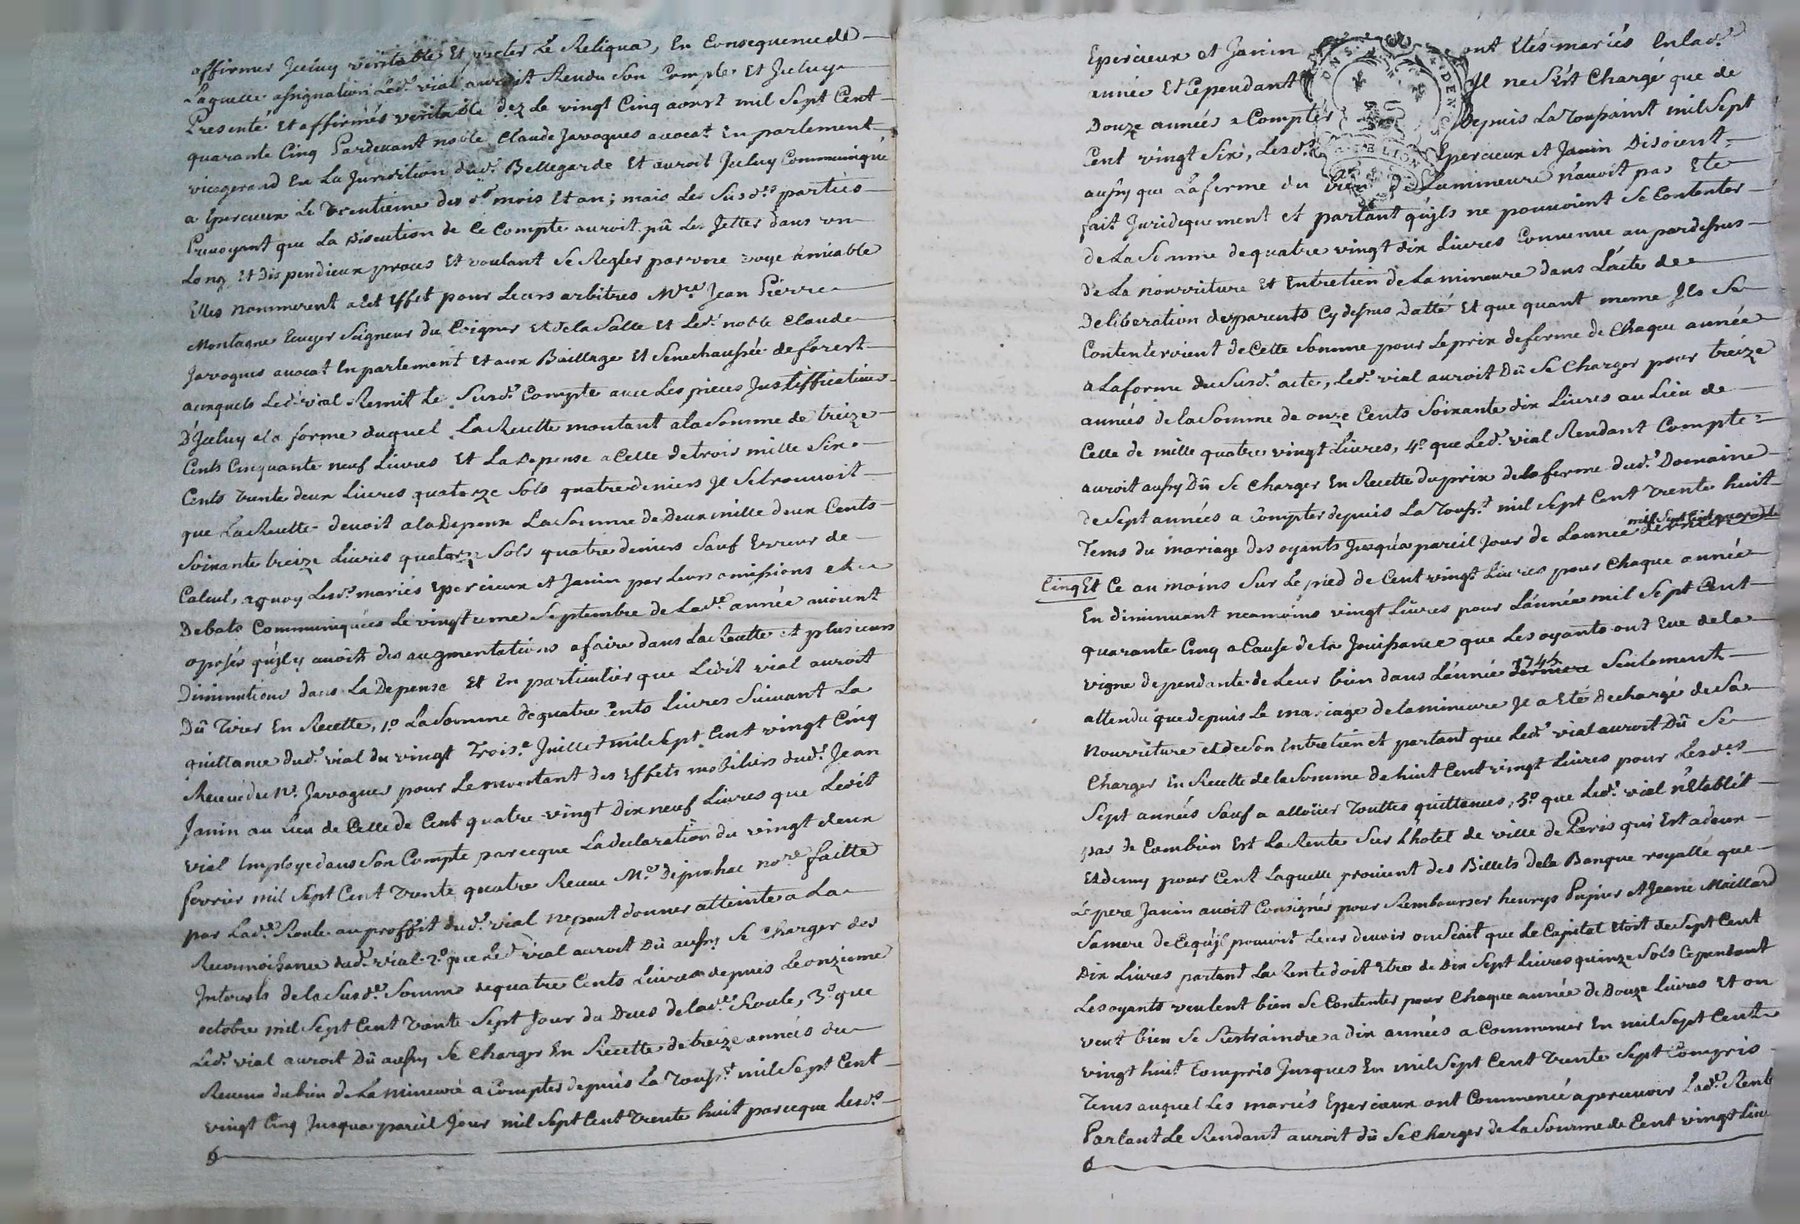 affirmer Iceluy veritable Et payer Le Reliqua, En Consequence de
Laquelle assignation Led. vial auroit Rendu Son Compte Et Iceluy
Presenté Et affirmés veritable dez Le vingt Cinq aoust mil Sept Cent
quarante Cinq Pardevant noble Claude Javogues avocat En parlement
vicegerand En La Jurisdition dud. Bellegarde Et auroit Iceluy Communiqué
a Epercieux Le Trentieme des d. mois Et an; mais Les Susd.es parties
Prevoyant que La Discution de Ce Compte auroit pû Les Jetter dans un
Long Et dispendieux proces Et voulant Se Regler par une voye amiable
Elles nommerent a Cet Effet pour Leurs arbitres M.re Jean Pierre
Montagne Ecuyer Seigneur du Poigner Et de la Salle Et Led. noble Claude
Javogues avocat En parlement Et aux Baillage Et Senechaussée de forest
auxquels Led. vial Remit Le Susd. Compte avec Les pieces Justifficatives
D'Iceluy a la forme duquel La Recette montant a la Somme de treize
Cents Cinquante neuf Livres Et La Depense a Celle de trois mille Six
Cents trente deux Livres quatorze Sols quatre deniers Il Se trouvoit
que La Recette devoit a la Depense La Somme de Deux mille deux Cents
Soixante treize Livres quatorze Sols quatre deniers Sauf Erreur de
Calcul, a quoy Lesd. mariés Epercieux Et Janin par Leurs omissions et
Debats Communiqués Le vingtieme Septembre de Lad.e année avoient
oposés qu'il y avoit des augmentations a faire dans La Recette et plusieurs
Diminutions dans La Depense Et En particulier que Ledit vial auroit
Dû Tirer En Recette, 1.o La Somme de quatre Cents Livres Suivant La
quittance dud. vial du vingt Trois.e Juillet mil Sept Cent vingt Cinq
Receue du N.e Javogues pour Le montant des Effets mobiliers dud. Jean
Janin au Lieu de Celle de Cent quatre vingt Dix neuf Livres que Ledit
vial Employe dans Son Compte parceque La declaration du vingt deux
fevrier mil Sept Cent Trente quatre Receue M.e no.re faitte
par Lad.e Roule au proffit dud. vial Ne peut donner atteinte a La
Reconnoissance dud. vial. 2.o que Led. vial auroit Dû aussy Se Charger des
Interests de la Susd.e Somme de quatre Cents Livres depuis Le onzieme
octobre mil Sept Cent Trente Sept Jour du Deces de lad.e Roule, 3.o que
Led. vial auroit Dû aussy Se Charger En Recette de treize années du
Revenu du bien de La mineure a Compter depuis La Touss.t mil Sept Cent
vingt Cinq Jusqua pareil Jour mil Sept Cent Trente huit parceque Lesd.s
Epercieux Et Janin ont Etés mariés En lad.e
année Et Cependant Il ne S'est Chargé que de
Douze années a Compter Depuis La Toussaint mil Sept
Cent vingt Six, Lesd.s Epercieux Et Janin Disoient
aussy que La ferme du bien de La mineure n'avoit pas Eté
fait Juridiquement et partant qu'ils ne pouvoient Se Contenter
de La Somme de quatre vingt dix Livres Convenue au par dessus
de La nourriture Et Entretien de La mineure dans L'acte de
Deliberation des parents Cy dessus datté Et que quant meme Ils Se
Contenteroient de Cette Somme pour Le prix de ferme de Chaque année
a La forme du Susd. acte, Led. vial auroit Dû Se Charger pour treize
années de la Somme de onze Cents Soixante dix Livres au Lieu de
Celle de mille quatre vingt Livres, 4.o que Led. vial Rendant Compte
auroit aussy Dû Se Charger En Recette du prix de la ferme dud. Domaine
de Sept années a Compter depuis La Touss.t mil Sept Cent Trente huit
mil Sept Cent quarante
Tems du mariage des oyants Jusqu'a pareil Jour de L'année
Cinq Et Ce au moins Sur Le pied de Cent vingt Livres pour Chaque année
En diminuant neamoins vingt Livres pour L'année mil Sept Cent
quarante Cinq a Cause de la Jouissance que Les oyants ont Eue de la
1745
vigne dependante de Leur bien dans L'année derniere Seulement
attendu que depuis Le mariage de la mineure Il a Eté Dechargé de Sa
Nourriture et de Son Entretien et partant que Led. vial auroit Dû Se
Charger En Recette de la Somme de huit Cent vingt Livres pour Lesd.es
Sept années Sauf a alloüer Touttes quittances, 5.o que Led. vial n'Etablit
pas de Combien Est La Rente Sur L'hotel de ville de Paris qui Est a deux
Et demy pour Cent Laquelle provient des Billets de la Banque royalle que
Le pere Janin avoit Consignés pour Rembourser henrys Papier Et Jeane Maillard
Sa mere de Ce qu'il pouvoit Leur devoir on Sçait que Le Capital Etoit de Sept Cent
Dix Livres partant La Rente doit Etre de Dix Sept Livres quinze Sols Cependant
Les oyants veulent bien Se Contenter pour Chaque année de Douze livres Et on
veut bien Se Restraindre a dix années a Commencer En mil Sept Cent
vingt huit Compris Jusques En mil Sept Cent Trente Sept Compris
Tems auquel Les mariés Epercieux ont Commencé a percevoir Lad.e Rente
Partant Le Rendant auroit dû Se Charger de La Somme de Cent vingt Liv